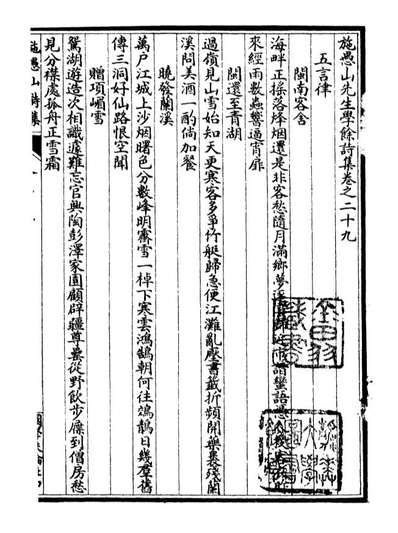 施愚山先生學餘詩集卷之二十九
五言律
閩南客舍
海畔正搖落烽烟還是非客愁隨月滿鄉夢
來經雨數蟲鷩逼宵扉
閩還至青湖
過嶺見山雪始知天更寒客多爭竹艇歸急便江灘亂壓書籤折頻開藥裹殘蘭
溪問美酒一酌倘加餐
曉發蘭溪
萬户江城上沙烟曙色分數峰明霽雪一棹下寒雲鴻鶴朝何往鴆鵲日幾羣舊
傳三洞好仙路恨空聞
贈項嵋雪
鴛湖遊造次相識遽難忘官興陶彭澤家園顧辟疆尊罍從野飲步屧到僧房愁
見分襟處孤舟正雪霜
施愚山詩集